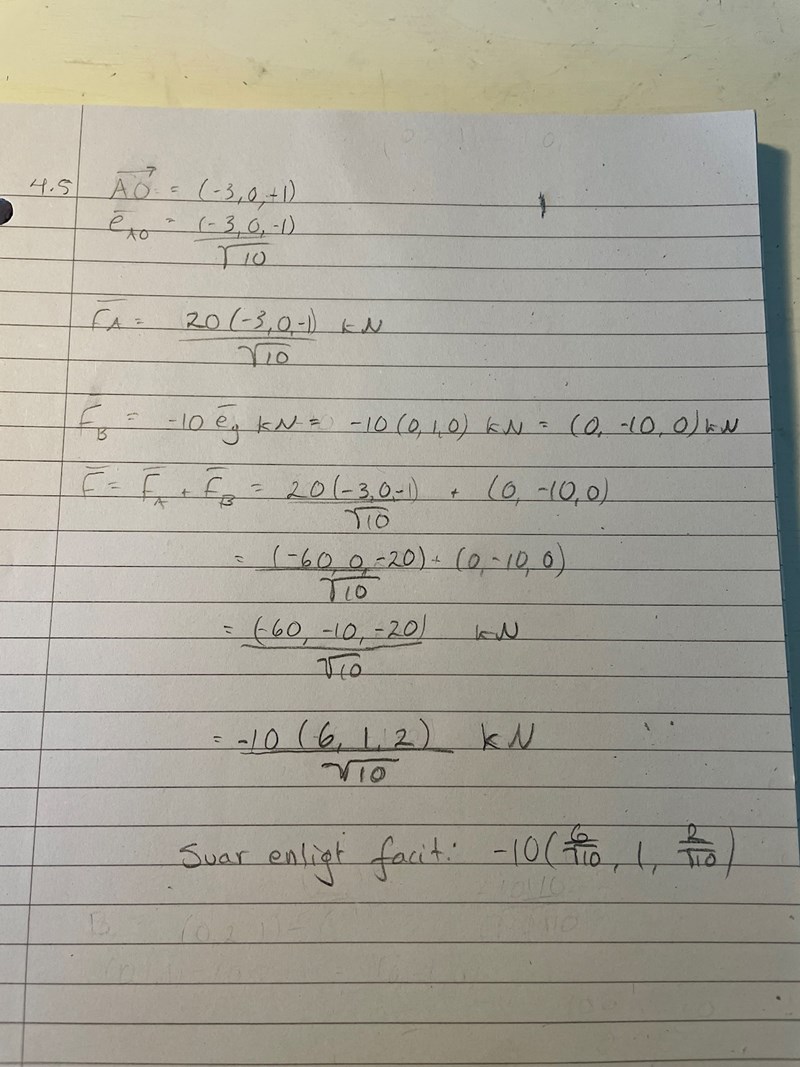 4.5 AO = (-3, 0, -1)
e_AO = (-3, 0, -1)
√10
F_A = 20(-3, 0, -1) kN
√10
F_B = -10 e_y kN = -10(0, 1, 0) kN = (0, -10, 0) kN
F = F_A + F_B = 20(-3, 0, -1) + (0, -10, 0)
√10
= (-60, 0, -20) + (0, -10, 0)
√10
= (-60, -10, -20) kN
√10
= -10 (6, 1, 2) kN
√10
Svar enligt facit: -10(6/√10, 1, 2/√10)